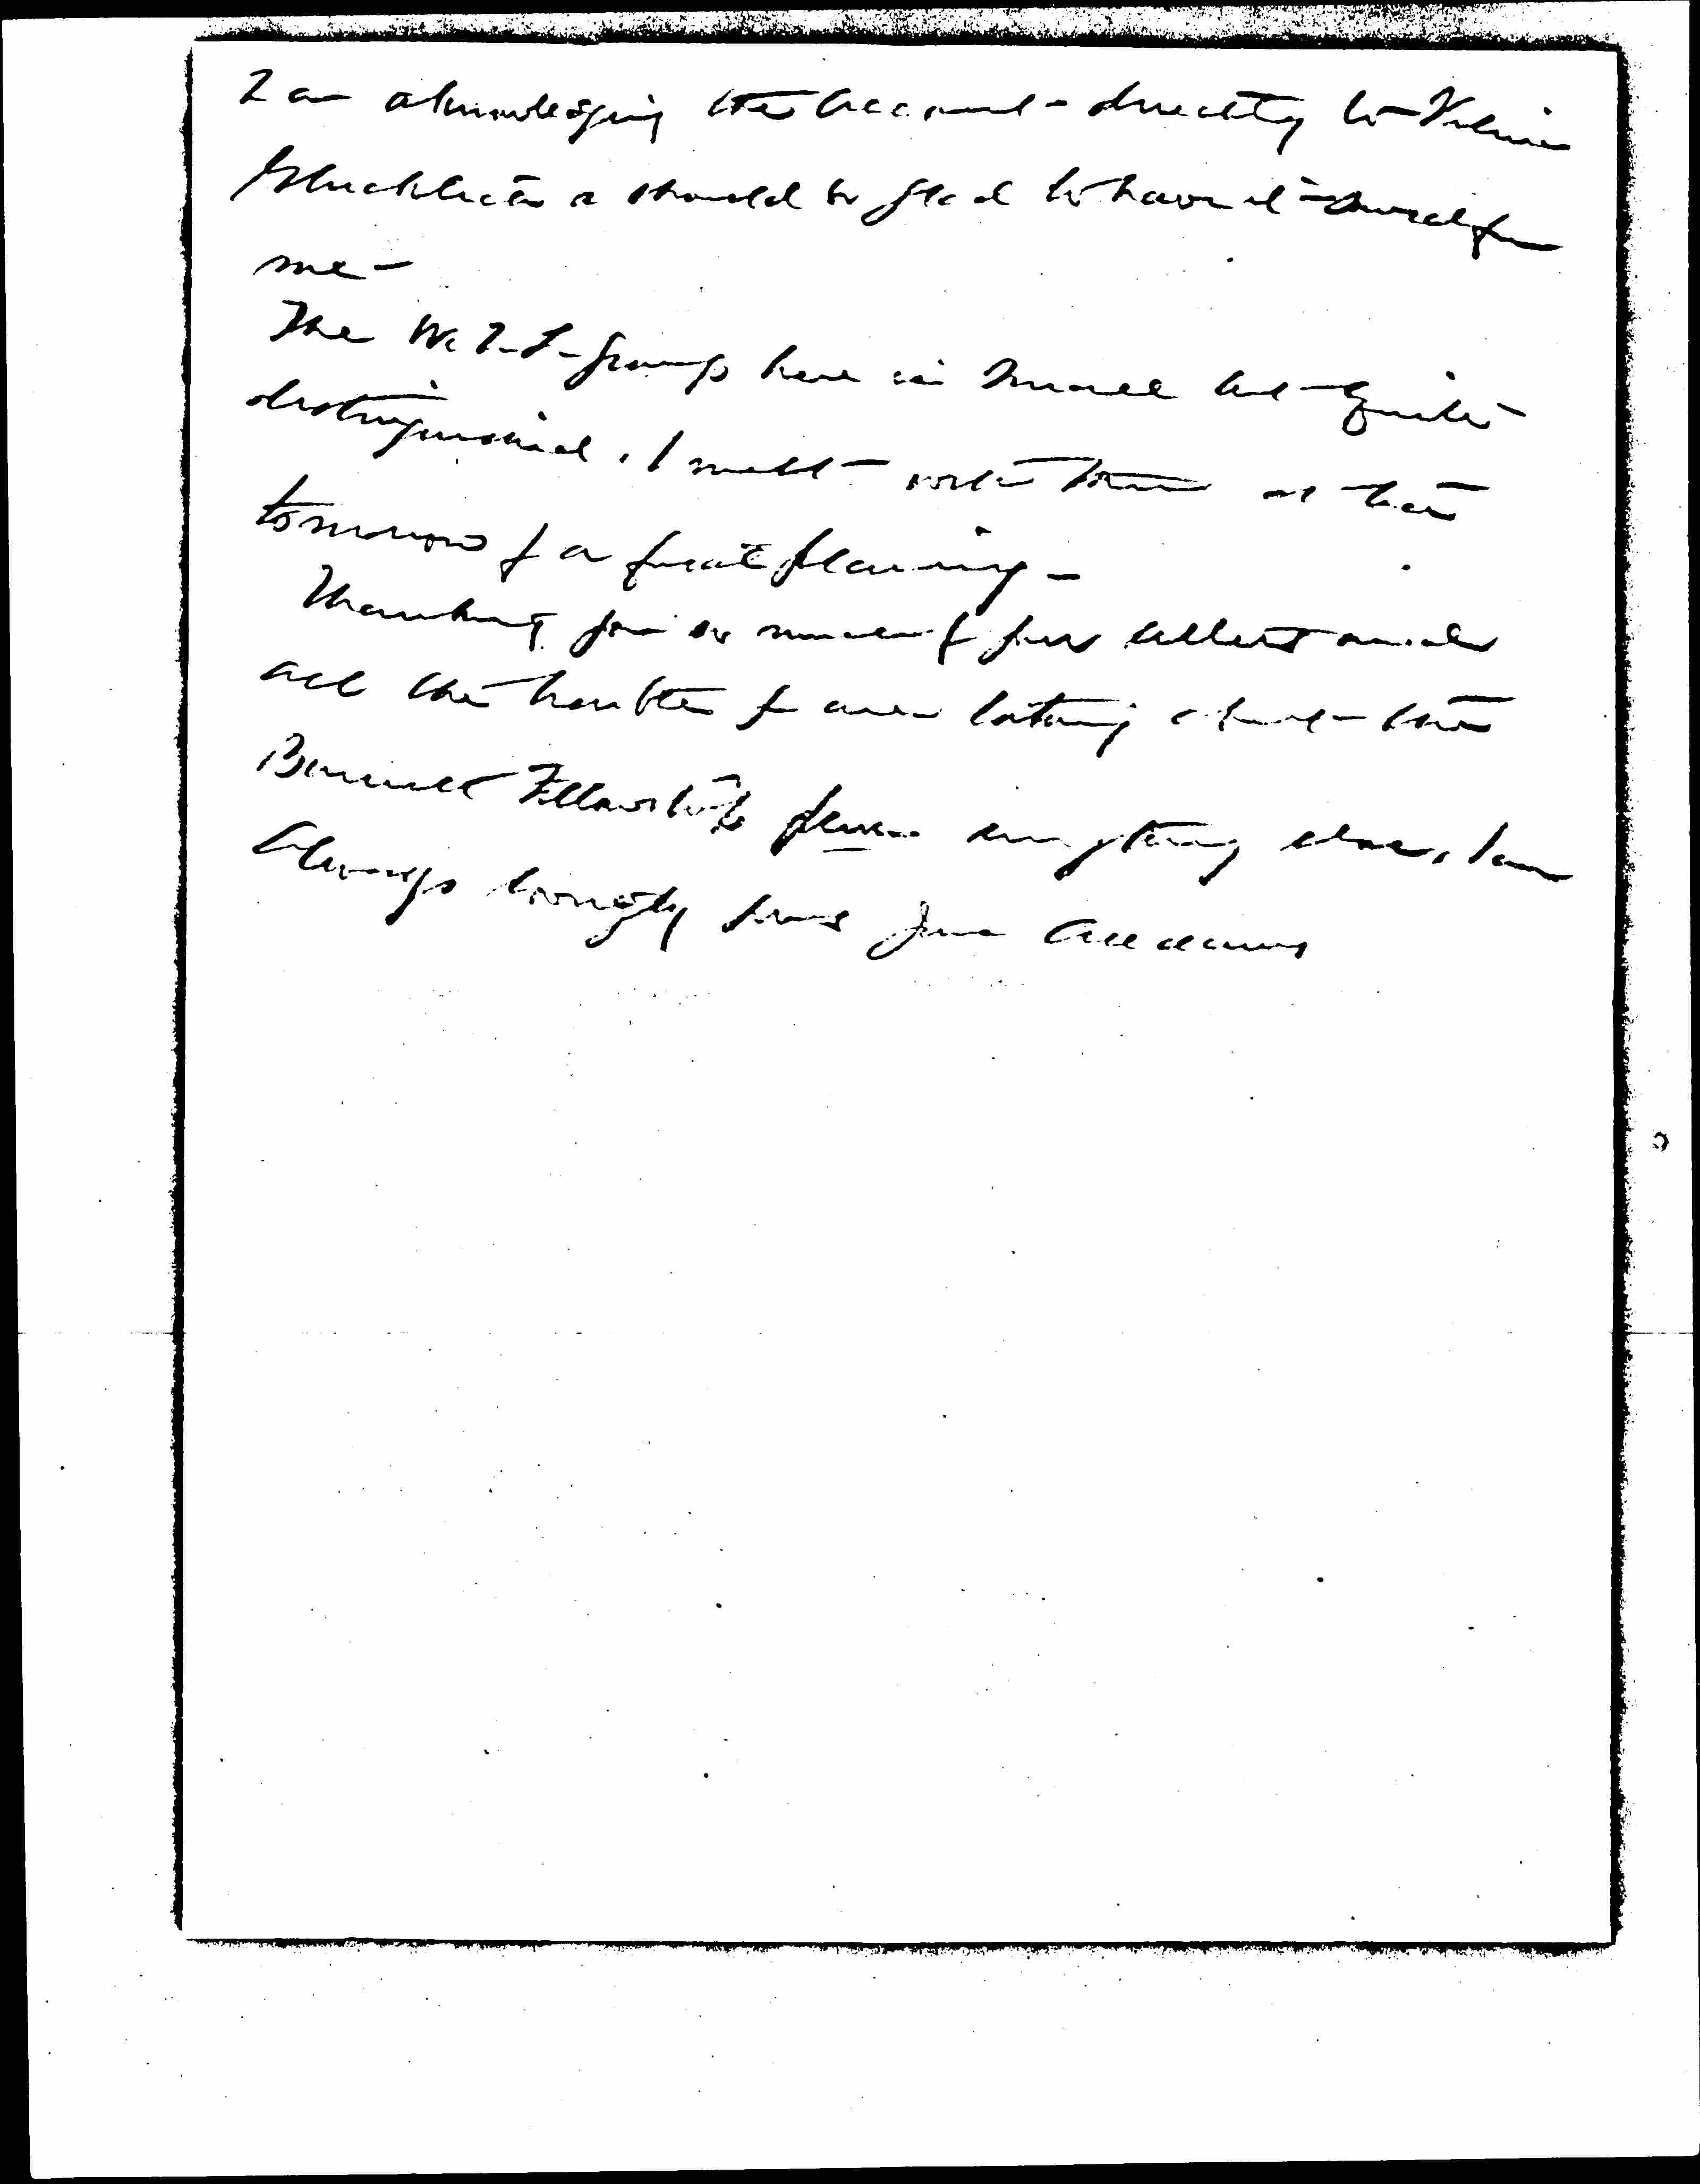 I am aknowledging the account directly to Vilma
Glucklich & should be glad to have it
me —
The W. I. L. group here is small but quite
distinguished. I meet with them at tea
tomorrow for a final planning —
Thanking you so much for your letters and
all the trouble you are taking about the
Fellowship & everything else, I am
Always lovingly yours Jane Addams